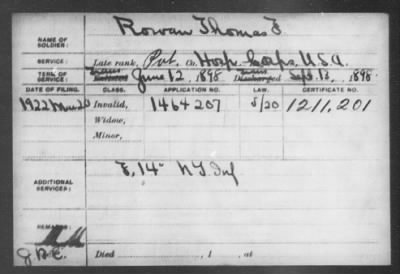 Rowan Thomas F
NAME OF SOLDIER:
SERVICE: Late rank, Pvt. Co. Hosp. Corps, U.S.A.
TERM OF SERVICE: Enlisted June 12, 1898. Discharged Sept. 13, 1898.
DATE OF FILING. CLASS. APPLICATION NO. LAW. CERTIFICATE NO.
1922 Mar 20 Invalid, 1464207 5/20 1211,201
Widow,
Minor,
ADDITIONAL SERVICES: F, 14" N.Y. Inf
REMARKS:
Died , 1 , at